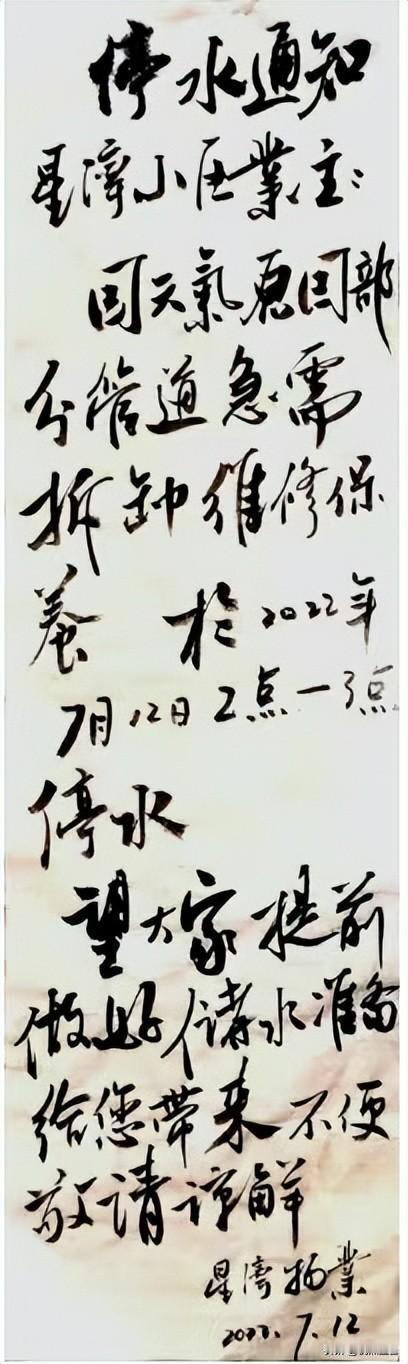 停水通知
星濤小区業主:
因天氣原因部
分管道急需
拆卸維修保
養 於2022年
7月12日2点一3点
停水
望大家提前
做好儲水準备
给您帶来不便
敬请諒解
星濤物業
2022.7.12